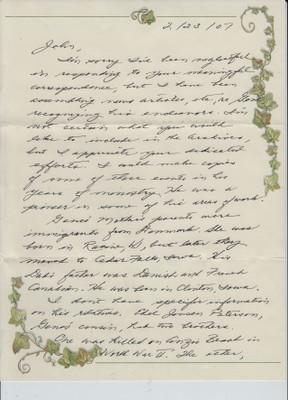 2/23/07
John,
I'm sorry I've been neglectful
in responding to your meaningful
correspondence, but I have been
assembling news articles, etc, re Gene
recognizing his endeavors. I'm
not certain what you would
like to include in the Archives,
but I appreciate your dedicated
efforts. I will make copies
of some of these events in his
years of ministry. He was a
pioneer in some of his areas of work.
Gene's Mother's parents were
immigrants from Denmark. She was
born in Racine, W, but later they
moved to Cedar Falls, Iowa. His
father was Danish and French
Canadian. He was born in Clinton, Iowa.
I don't have specific information
on his relatives. Chel Jensen Peterson,
Gene's cousin, had two brothers.
One was killed on Anzio Beach in
World War II. The other,